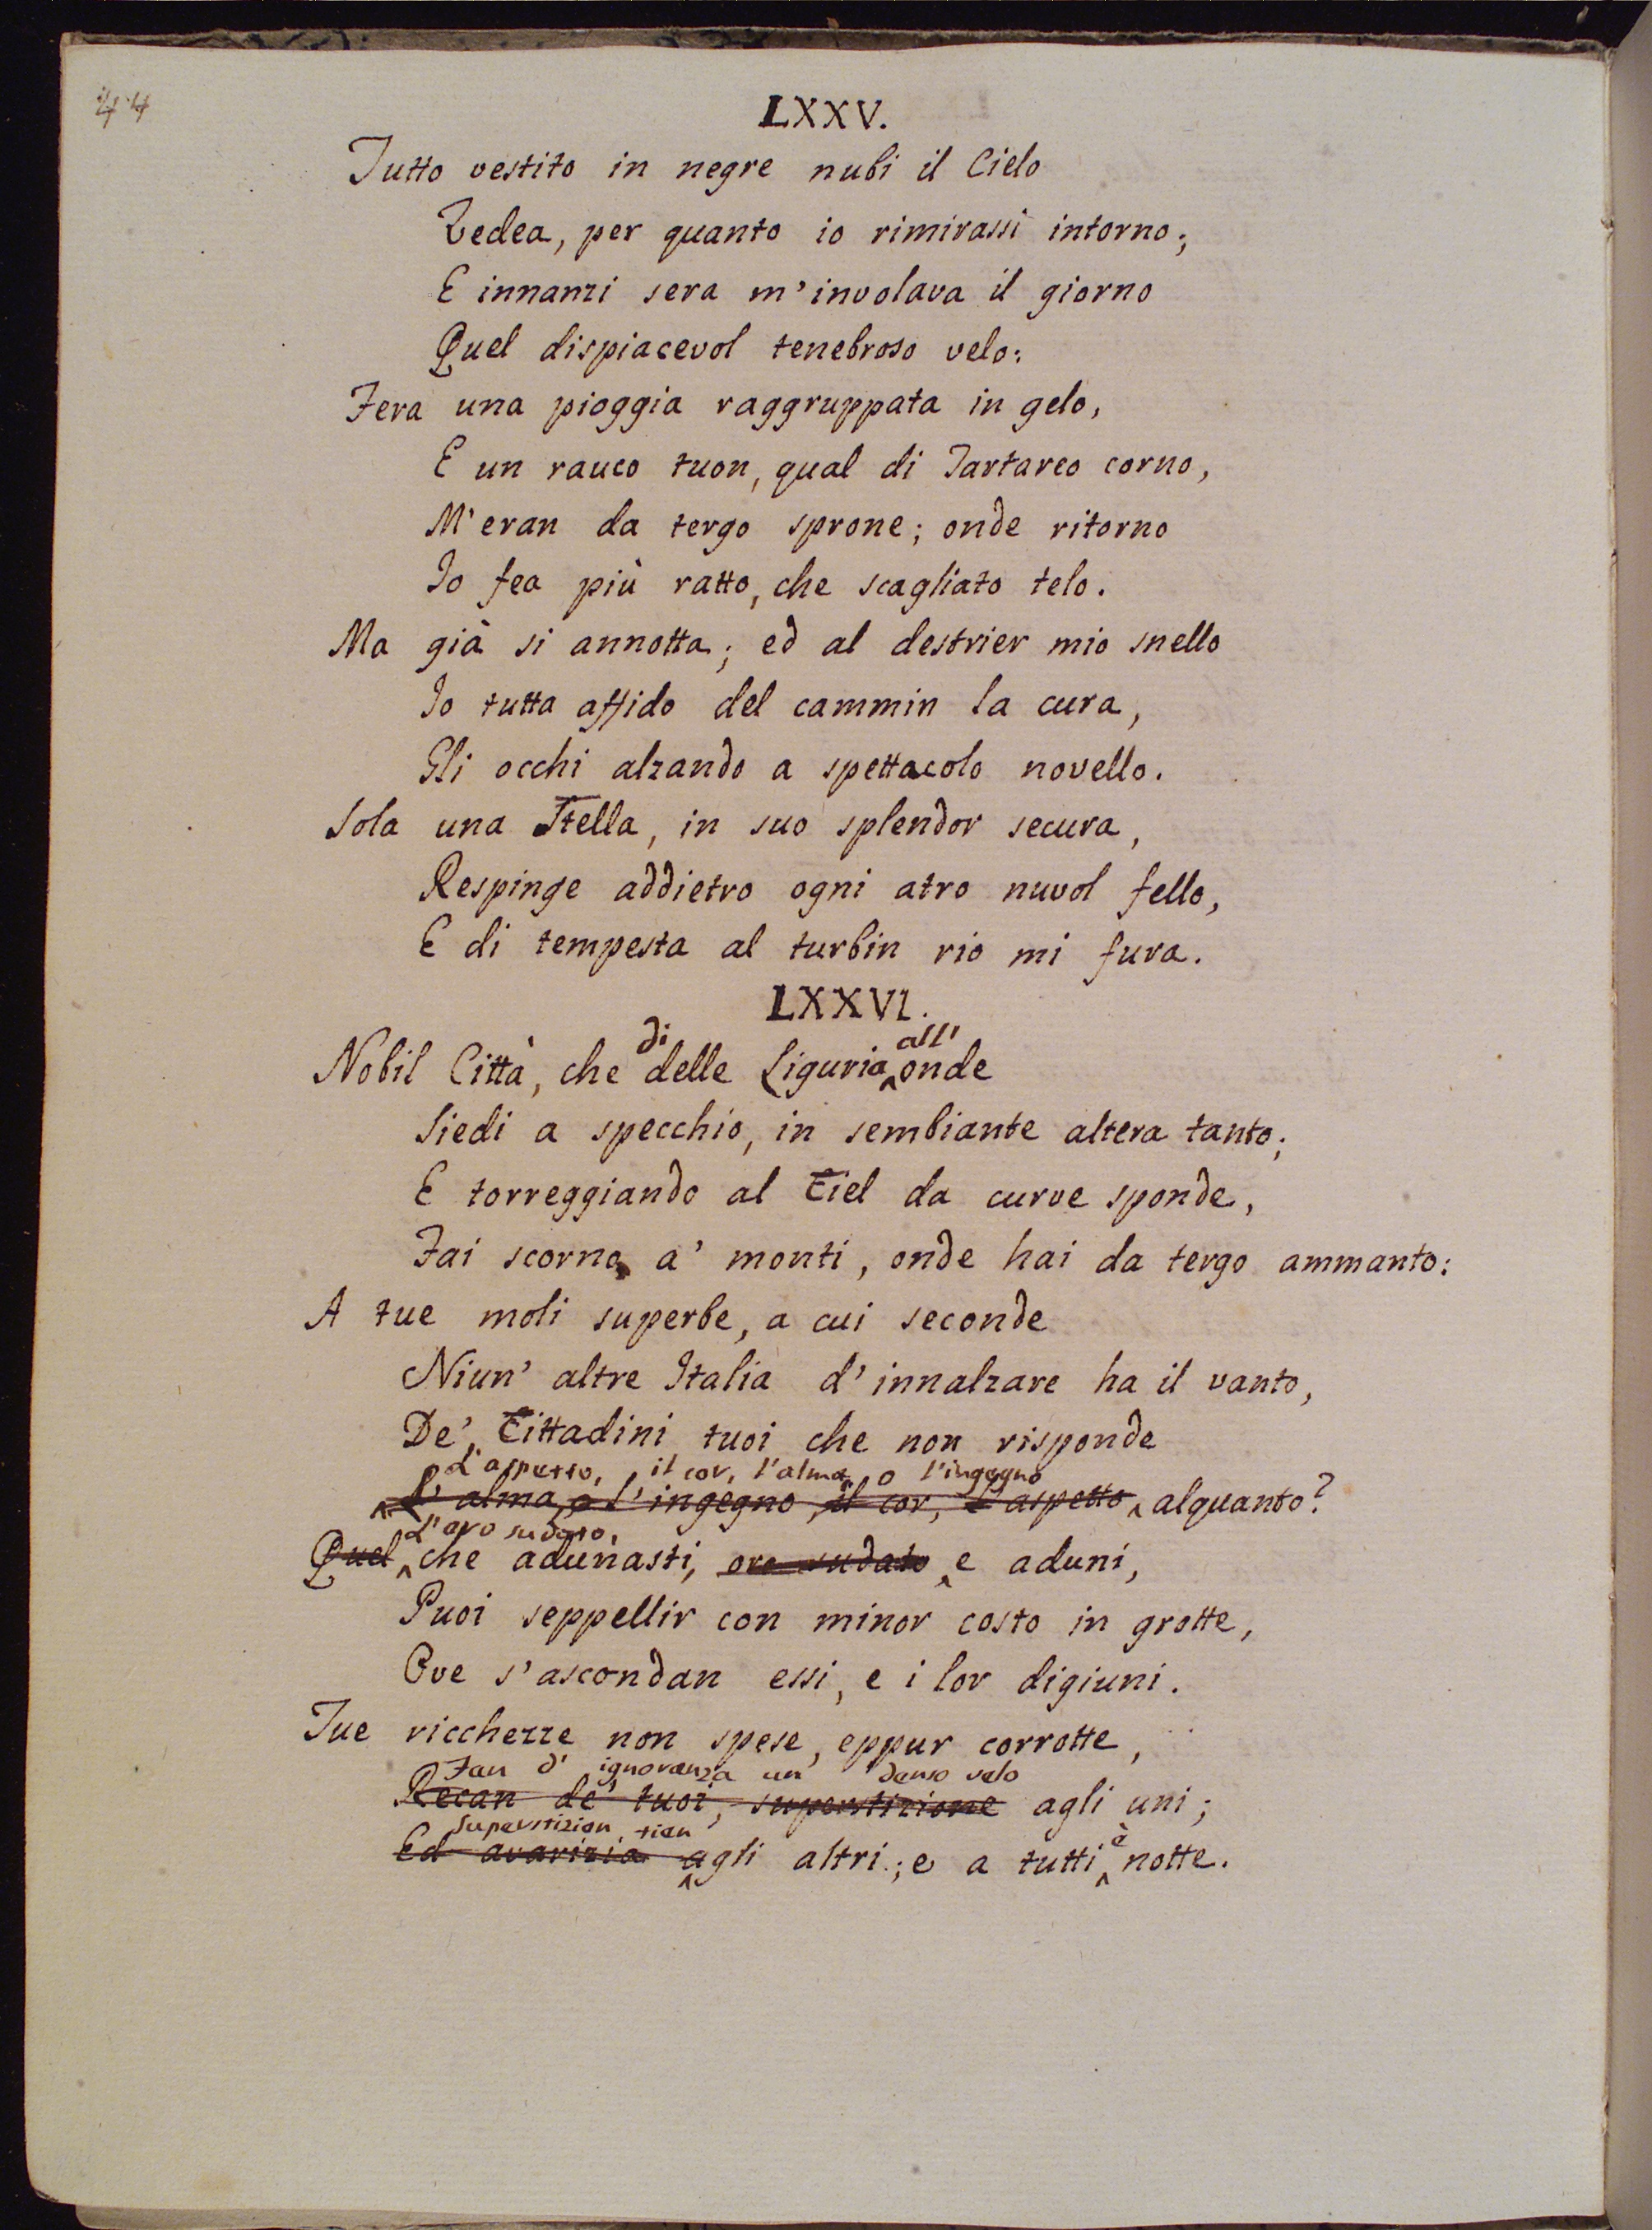 44
LXXV.
Tutto vestito in negre nubi il Cielo
Vedea, per quanto io rimirassi intorno;
E innanzi sera m'involava il giorno
Quel dispiacevol tenebroso velo:
Fera una pioggia raggruppata in gelo,
E un rauco tuon, qual di Tartareo corno,
M'eran da tergo sprone; onde ritorno
Io fea più ratto, che scagliato telo.
Ma già si annotta; ed al destrier mio snello
Io tutta affido del cammin la cura,
Gli occhi alzando a spettacolo novello.
Sola una Stella, in suo splendor secura,
Respinge addietro ogni atro nuvol fello,
E di tempesta al turbin rio mi fura.
LXXVI.
di all'
Nobil Città, che delle Liguria onde
Siedi a specchio, in sembiante altera tanto;
E torreggiando al Ciel da curve sponde,
Fai scorno a' monti, onde hai da tergo ammanto:
A tue moli superbe, a cui seconde
Niun' altre Italia d'innalzare ha il vanto,
De' Cittadini tuoi che non risponde
L'aspetto, il cor, l'alma, o l'ingegno
L'alma, o l'ingegno, il cor, l'aspetto alquanto?
L'oro sudato,
Quel che adunasti, oro sudato e aduni,
Puoi seppellir con minor costo in grotte,
Ove s'ascondan essi, e i lor digiuni.
Tue ricchezze non spese, eppur corrotte,
Fan d'ignoranza un denso velo
Recan de' tuoi, superstizione agli uni;
Superstizion tien
Ed avarizia agli altri; e a tutti è notte.